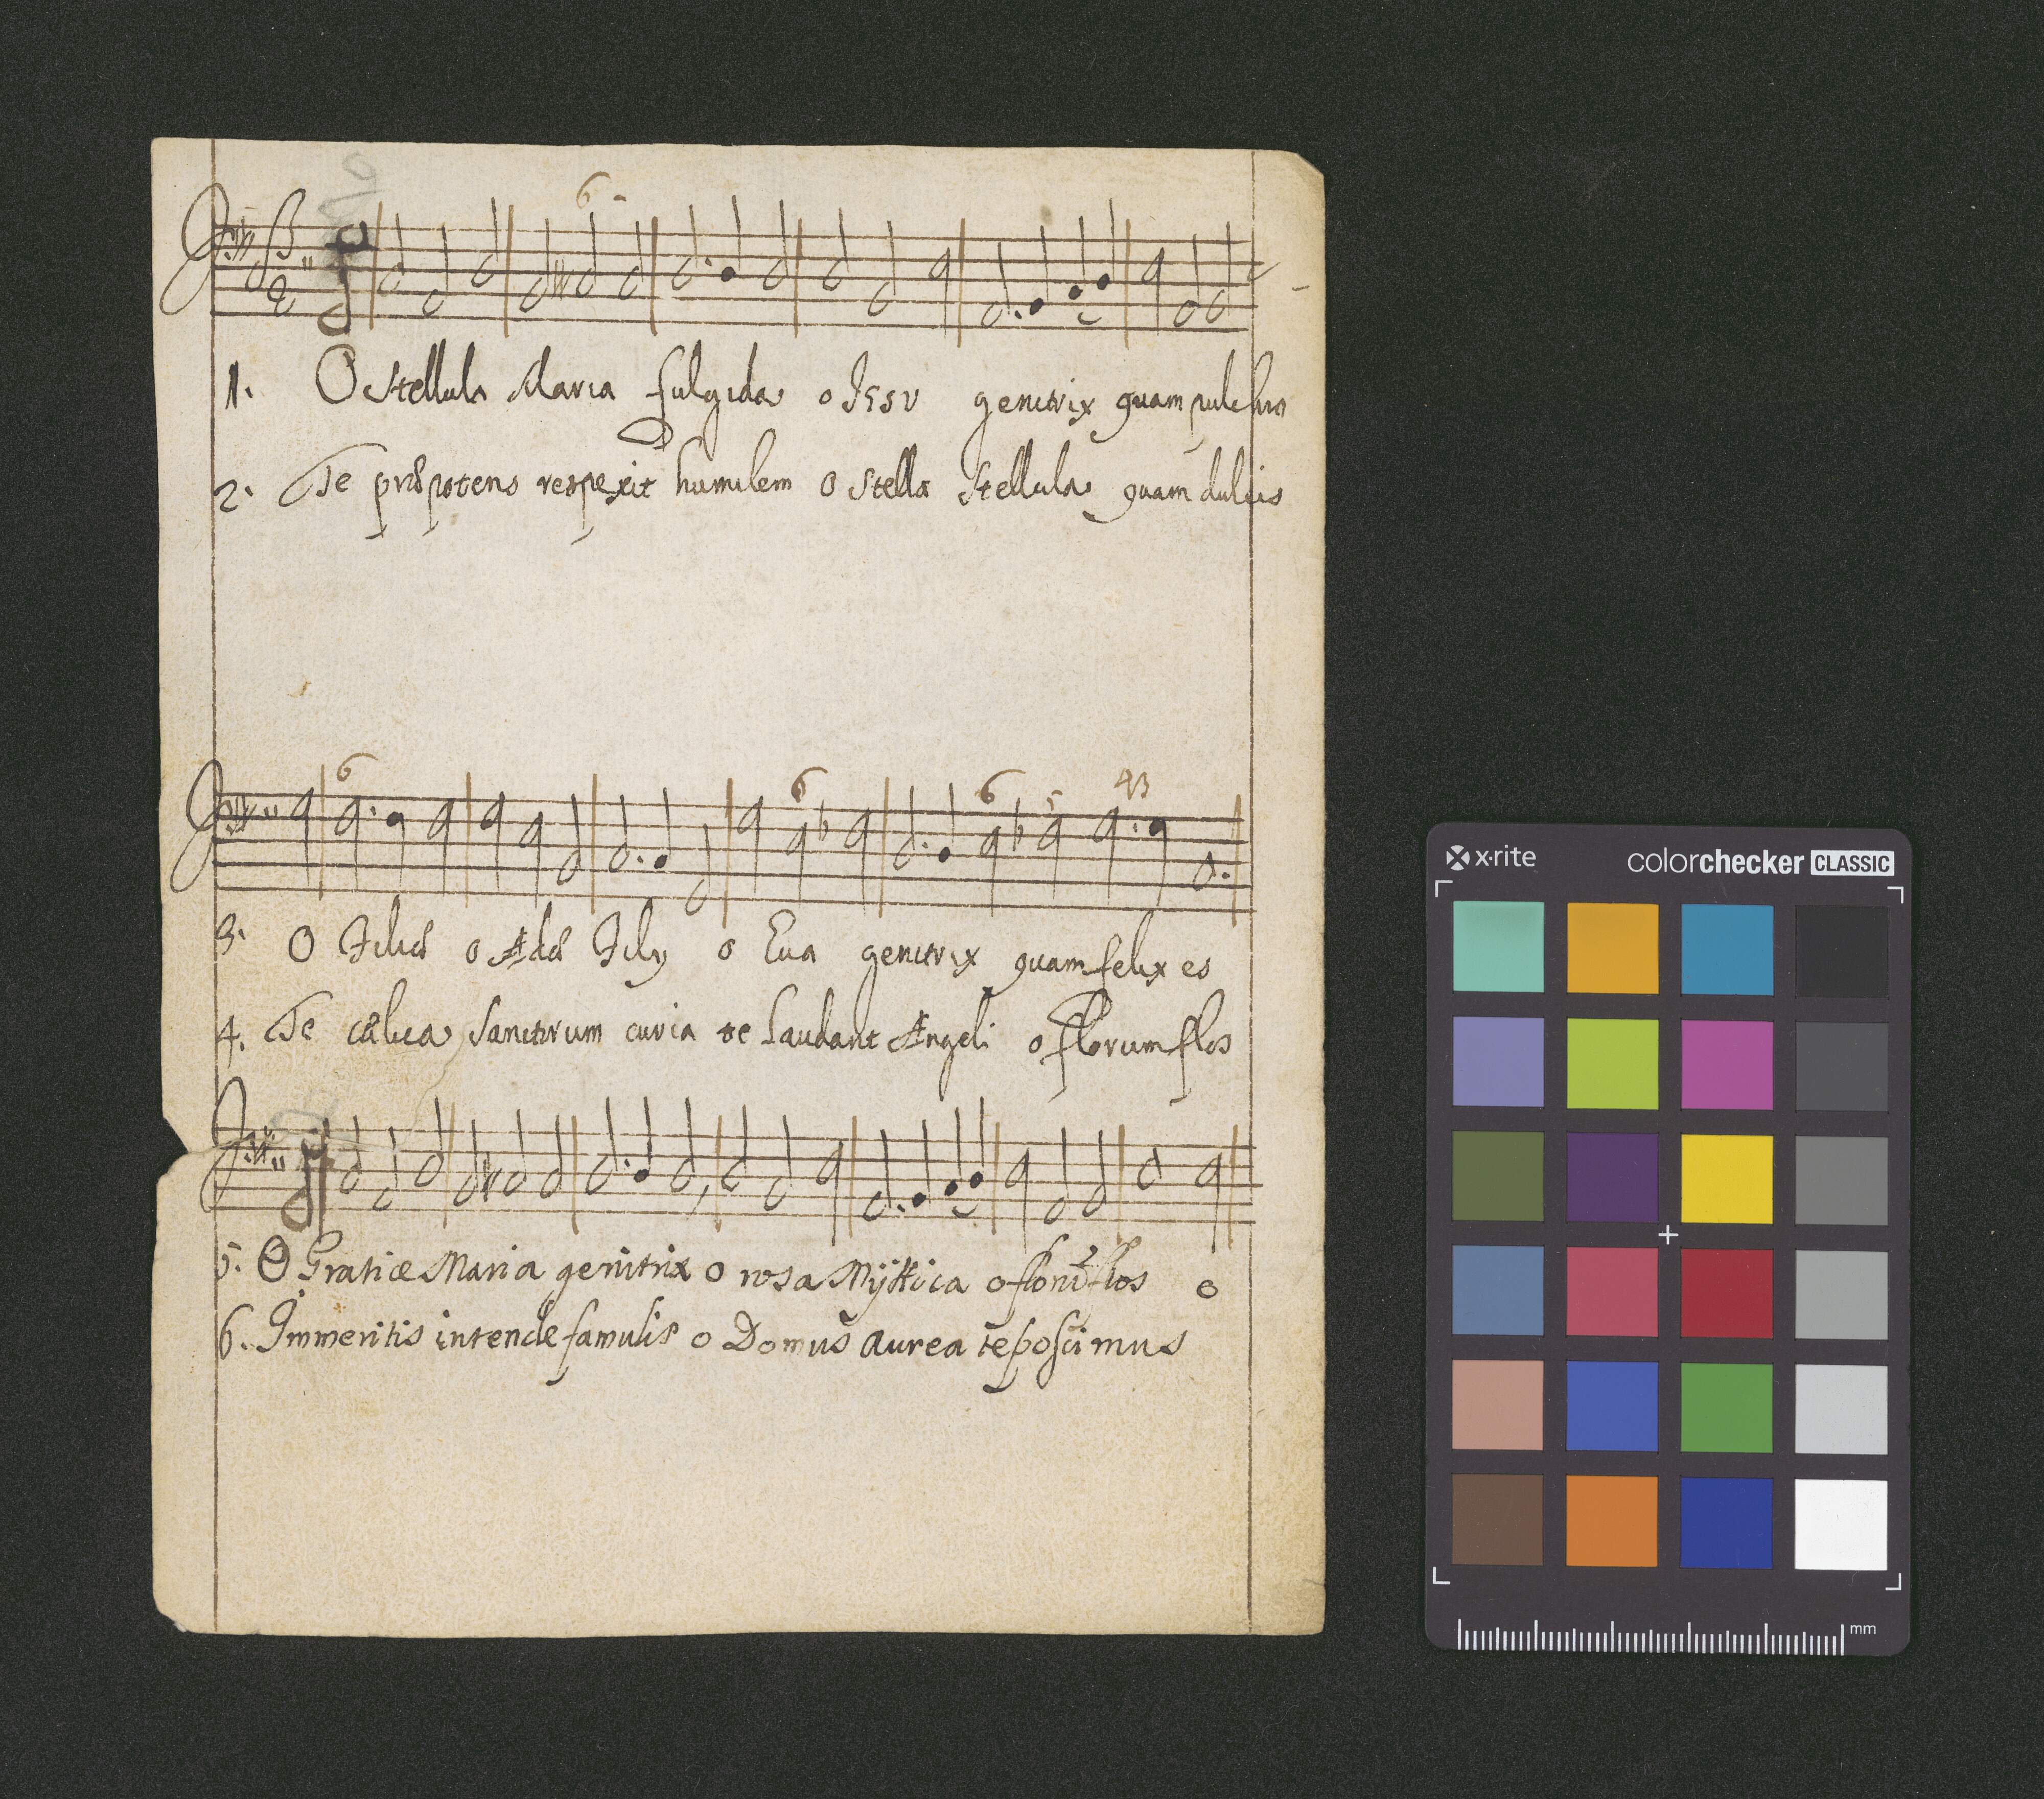 6
1. O stellula Maria fulgida o Jesu genitrix quam pulchra
2. Te præpotens respexit humilem O Stella Stellula quam dulcis
6 6 6 5 43
3. O Filiæ o Adæ Filij o Eua genitrix quam felix es
4. Te cælica Sanctrum curia te laudant Angeli o florum flos
5. O Gratiæ Maria genitrix o rosa Mijstica o florū flos o
6. Immeritis intende famulis o Domus aurea te poscimus
x·rite colorchecker CLASSIC
mm